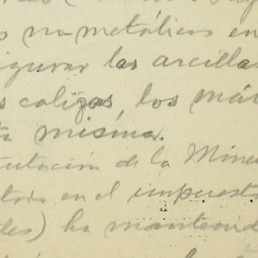 no-metálicos en
figurar las arcillas
calizas, los már
misma.
tutación de la Mine
en el impuesto
les) ha mantenid